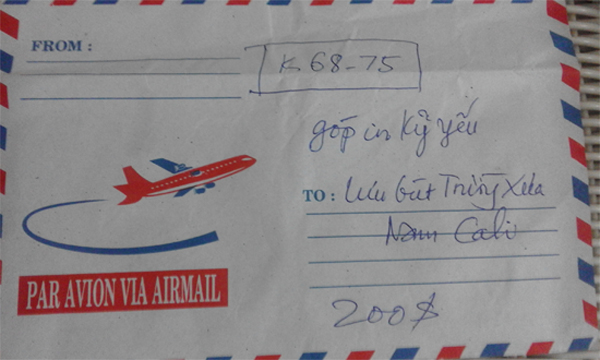 FROM :
K 68-75
góp in Kỷ yếu
TO : Lưu bút Trường Xưa
Nam Cali
PAR AVION VIA AIRMAIL
200$